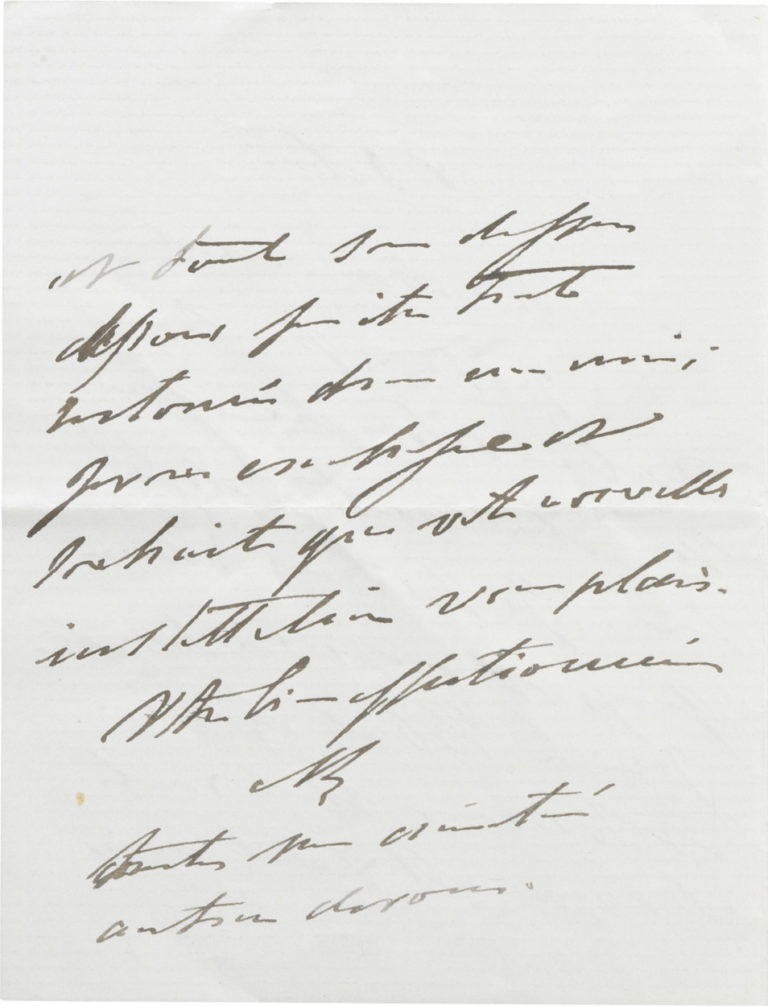 et tout sens dessus
dessous
dans un mois,
je vous embrasse et
souhaite que votre nouvelle
installation vous plaise.
Votre bien affectionnée
toutes mes amitiés
autour de vous.